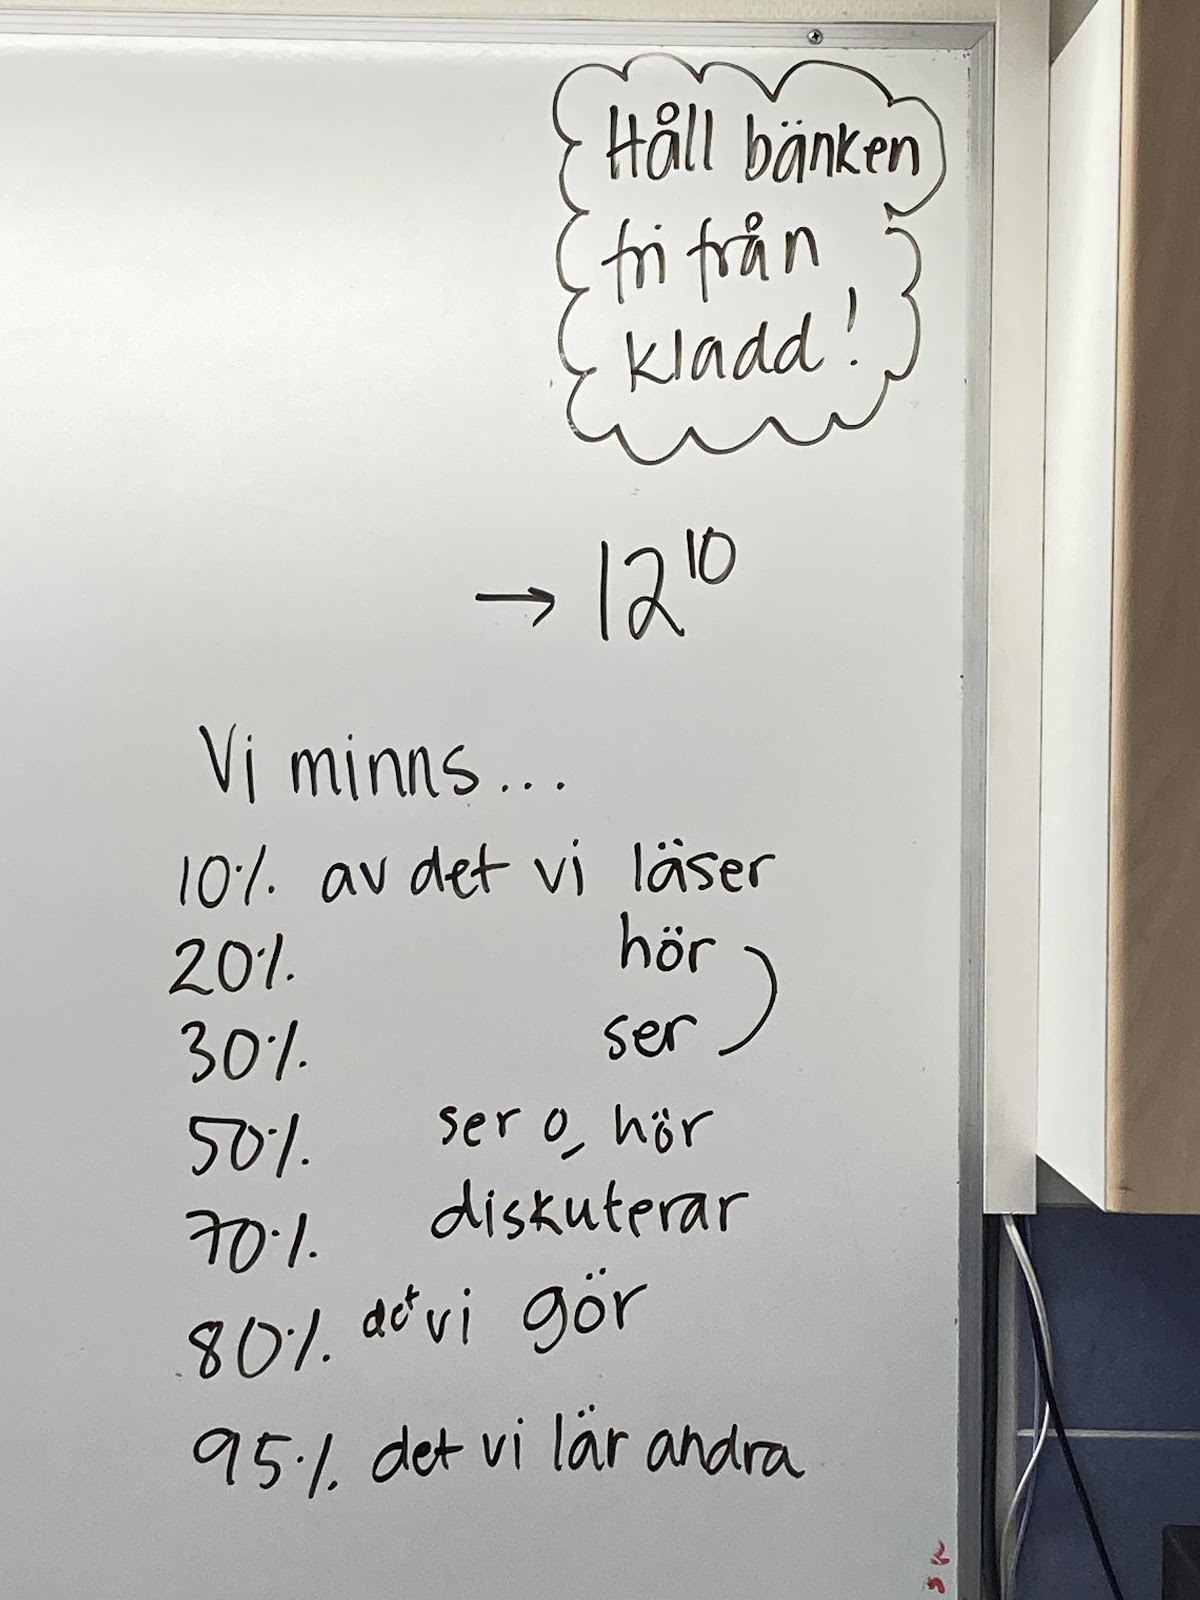 Håll bänken
fri från
kladd!
→ 12¹⁰
Vi minns...
10% av det vi läser
20% hör
30% ser
50% ser o, hör
70% diskuterar
80% det vi gör
95% det vi lär andra